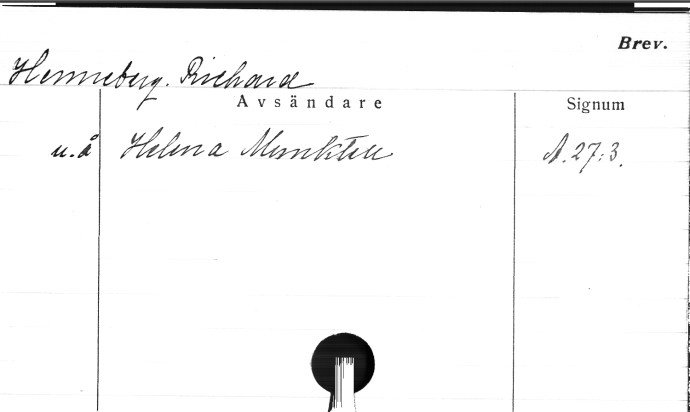 Brev.
Henneberg. Richard
Avsändare Signum
u.å Helena Munktell A. 27:3.